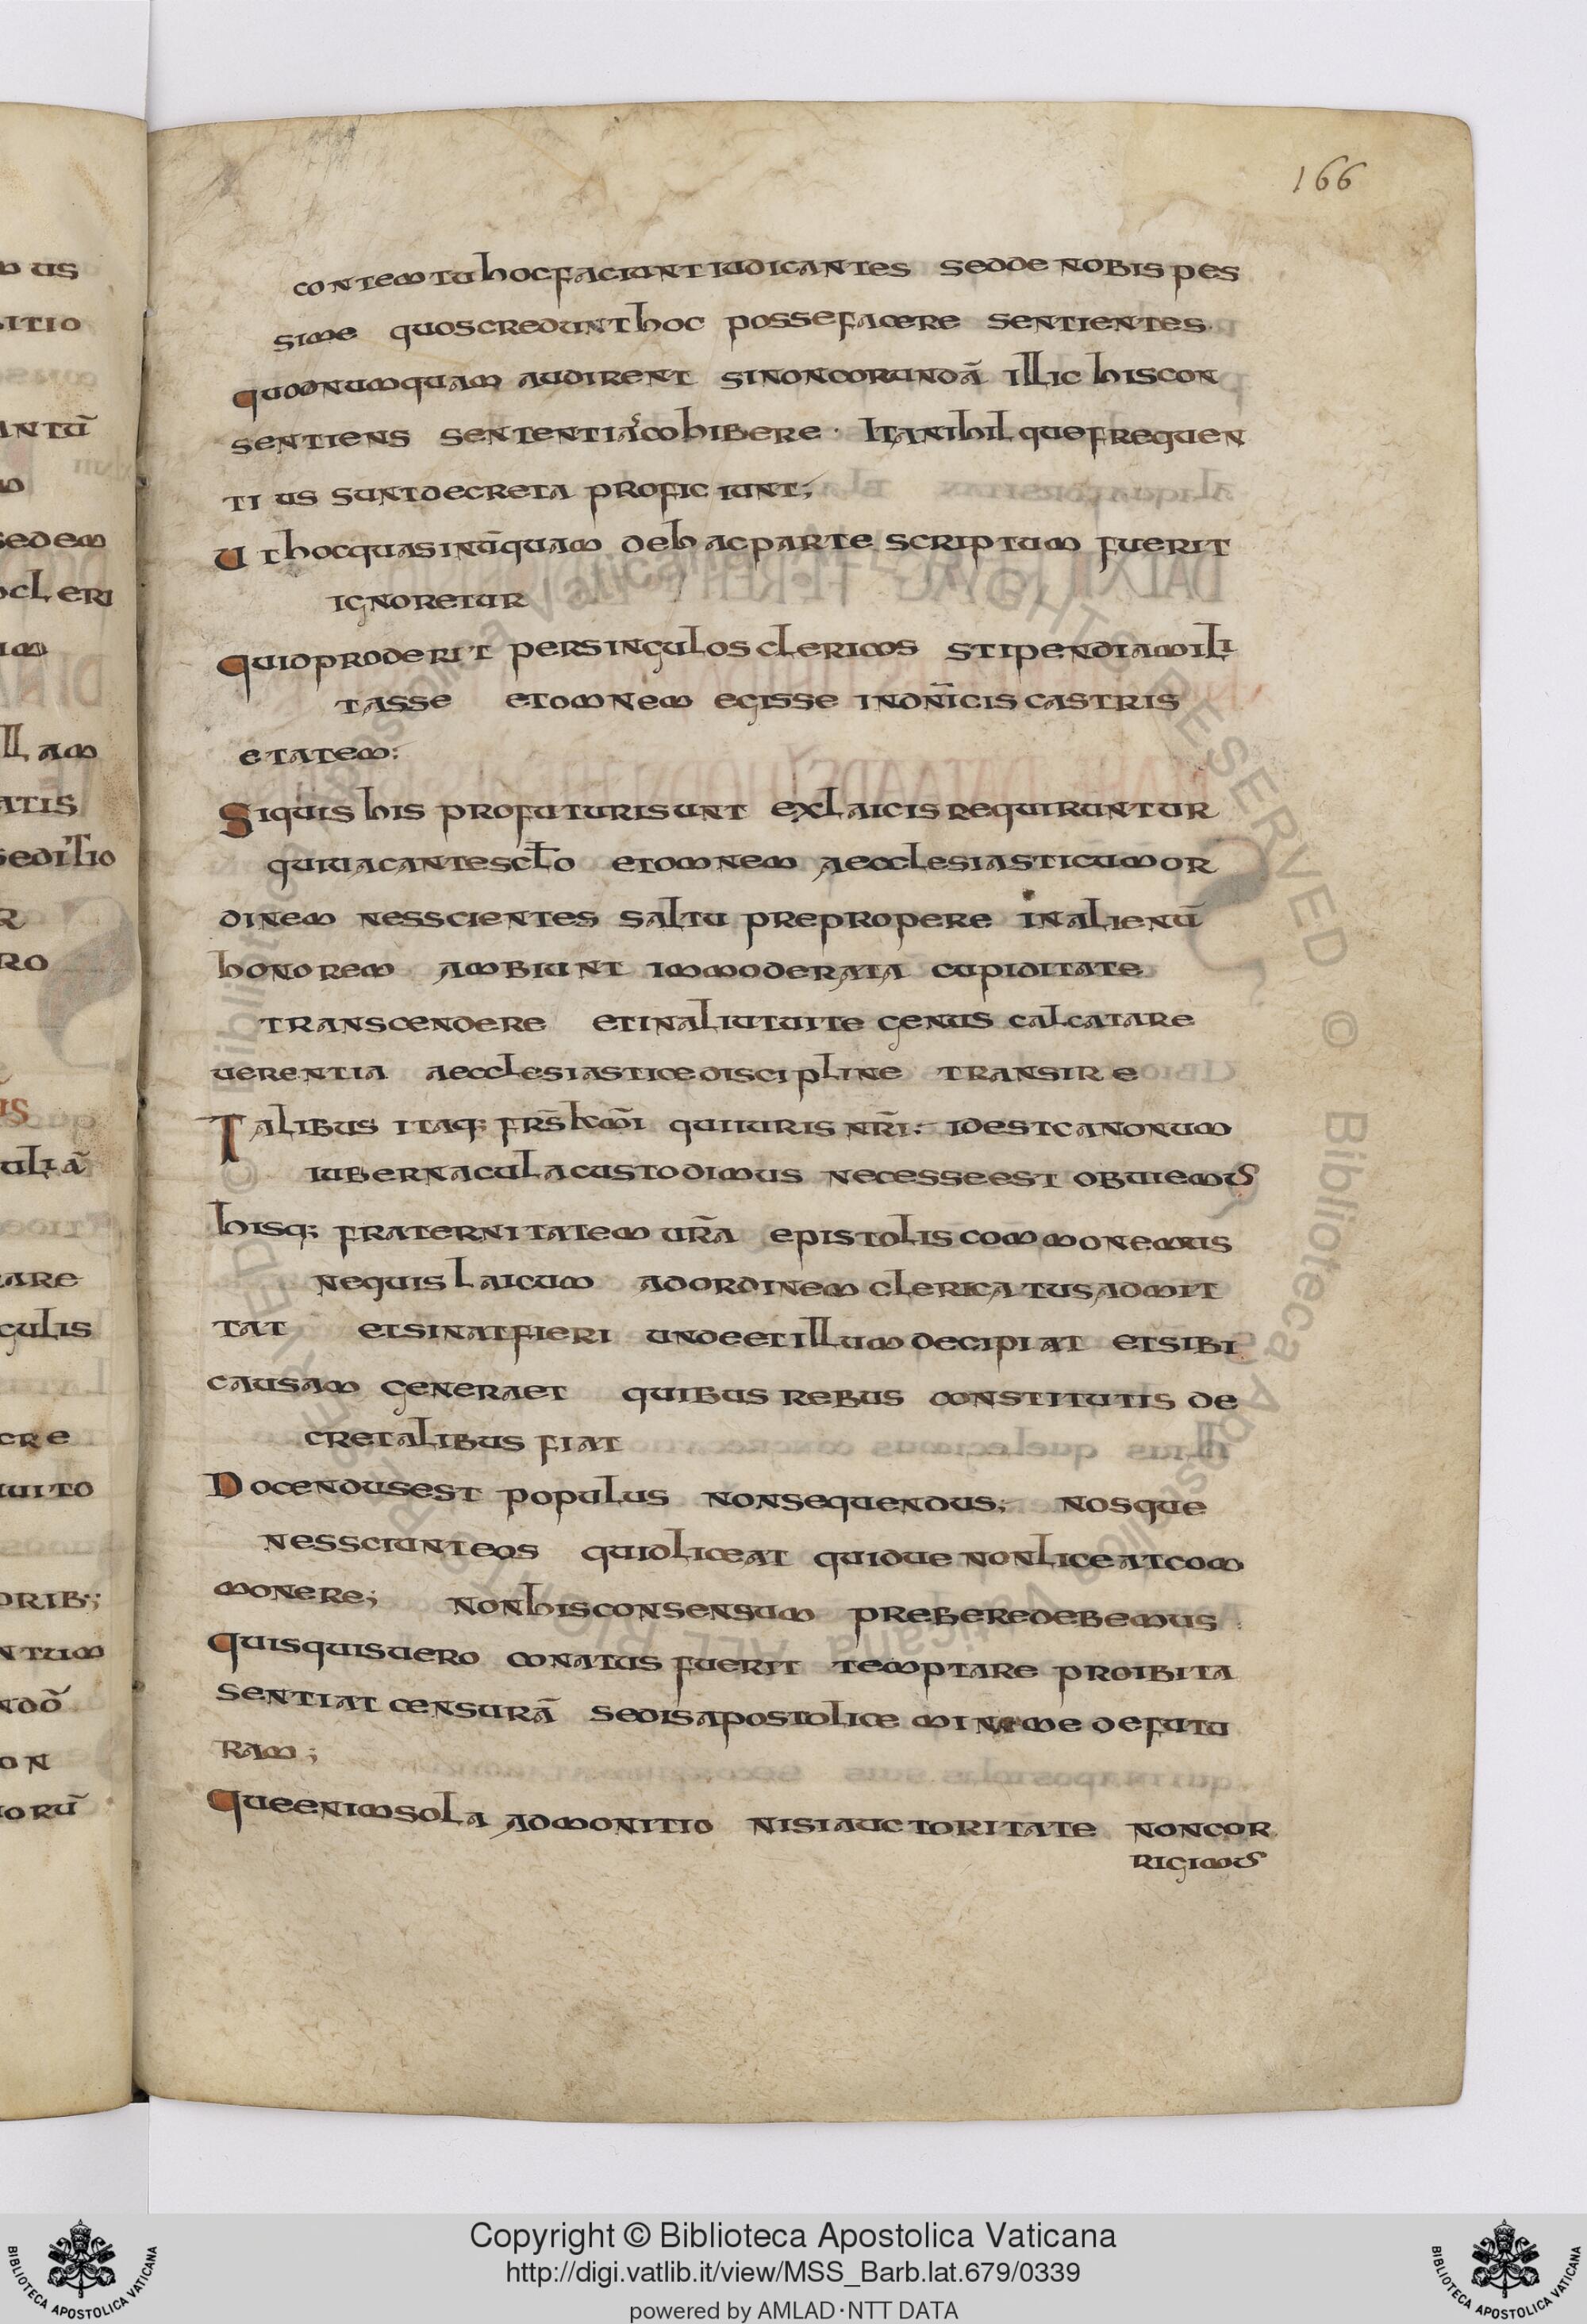 166
contemtu hoc faciunt iudicantes sedde nobis pes
sime quos credunt hoc posse facere sentientes
quodnumquam audirent sinoncorundā illic his con
sentiens sententiā cohibere · Ita nihil que frequen
ti us sunt decreta profic iunt;
Ut hoc quasi nūquam deh ac parte scriptum fuerit
ignoretur
Quid proderit per singulos clericos stipendia mili
tasse et omnem egisse in dn̄icis castris
etatem:
Siquis his profuturi sunt ex laicis requiruntur
qui uacantes cl̄o et omnem aecclesiasticum or
dinem nesscientes saltu prepropere in alienū
honorem ambiunt immoderata cupiditate
transcendere et in aliut uite genus calcata re
uerentia aecclesiastice discipline transire
Talibus itaq; fr̄s km̄i qui iuris nr̄i: id est canonum
iubernacula custodimus necesse est obuiemus
hisq; fraternitatem ur̄a epistolis commonemus
ne quis laicum ad ordinem clericatus admit
tat et sinat fieri unde et illum decipiat et sibi
causam generaet quibus rebus constitutis de
cretalibus fiat
Docendus est populus non sequendus; nosque
nessciunt eos quid liceat quidue non liceat com
monere; non his consensum prebere debemus
Quisquis uero conatus fuerit temptare proibita
sentiat censurā sedis apostolice minime defutu
ram;
Que enim sola admonitio nisi auctoritate non cor
rigimus
Copyright © Biblioteca Apostolica Vaticana
http://digi.vatlib.it/view/MSS_Barb.lat.679/0339
powered by AMLAD·NTT DATA
BIBLIOTECA APOSTOLICA VATICANA
BIBLIOTECA APOSTOLICA VATICANA